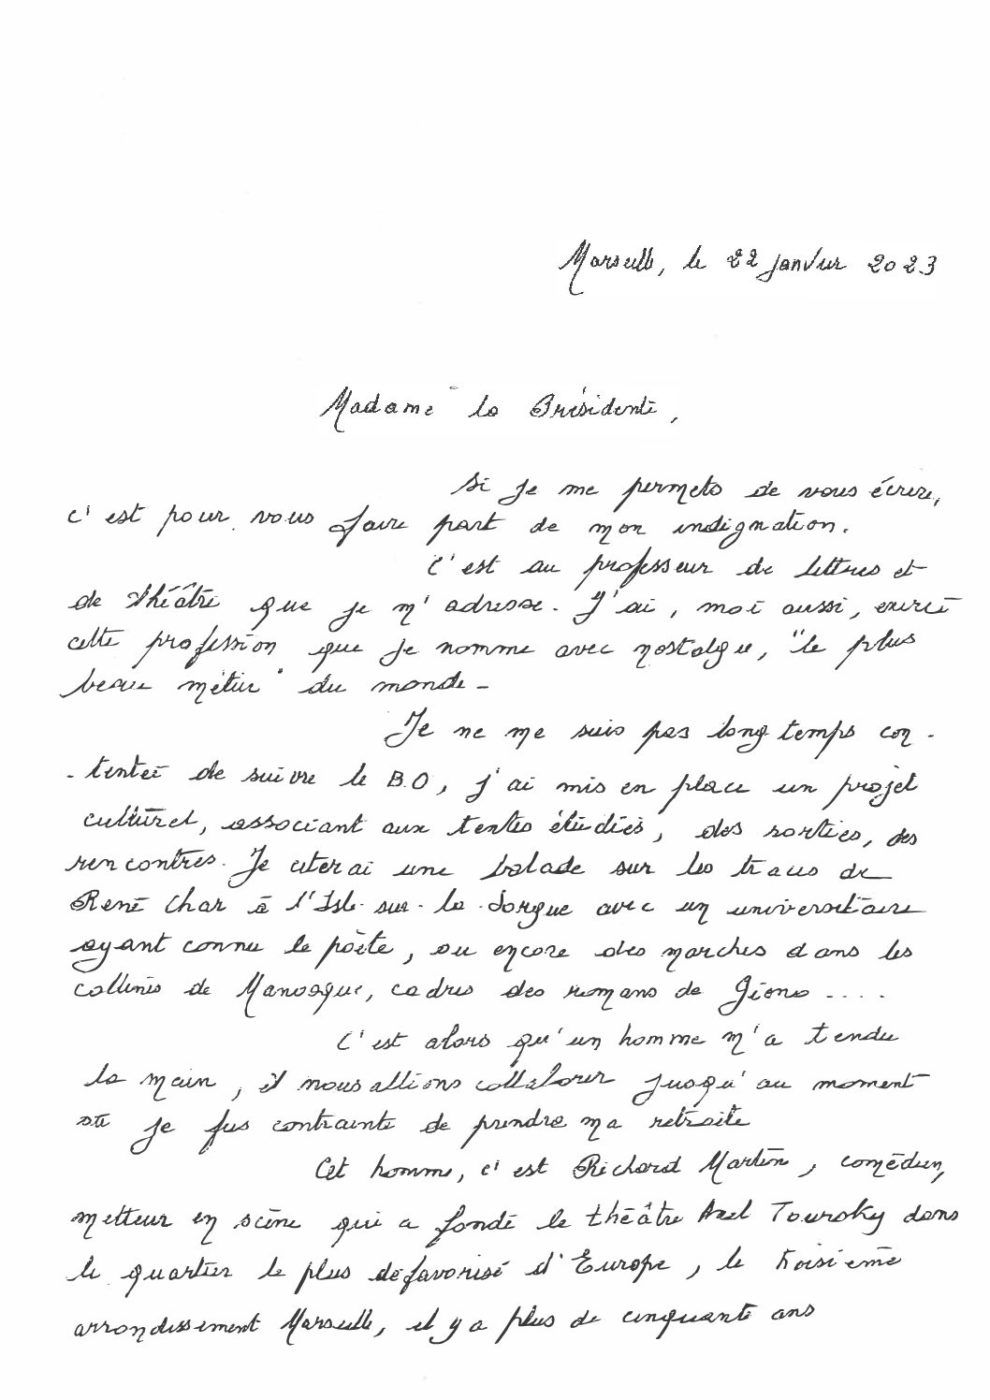 Marseille, le 22 janvier 2023
Madame la Présidente,
Si je me permets de vous écrire,
c'est pour vous faire part de mon indignation.
C'est au professeur de lettres et
de théâtre que je m'adresse. J'ai, moi aussi, exercé
cette profession que je nomme avec nostalgie, "le plus
beau métier" du monde -
Je ne me suis pas longtemps con-
-tentée de suivre le B.O, j'ai mis en place un projet
culturel, associant aux textes étudiés, des sorties, des
rencontres. Je citerai une balade sur les traces de
René Char à l'Isle-sur-la-Sorgue avec un universitaire
ayant connu le poète, ou encore des marches dans les
collines de Manosque, cadres des romans de Giono ....
C'est alors qu'un homme m'a tendu
la main, et nous allions collaborer jusqu'au moment
où je fus contrainte de prendre ma retraite
Cet homme, c'est Richard Martin, comédien,
metteur en scène qui a fondé le théâtre Axel Toursky dans
le quartier le plus défavorisé d'Europe, le troisième
arrondissement Marseille, il y a plus de cinquante ans